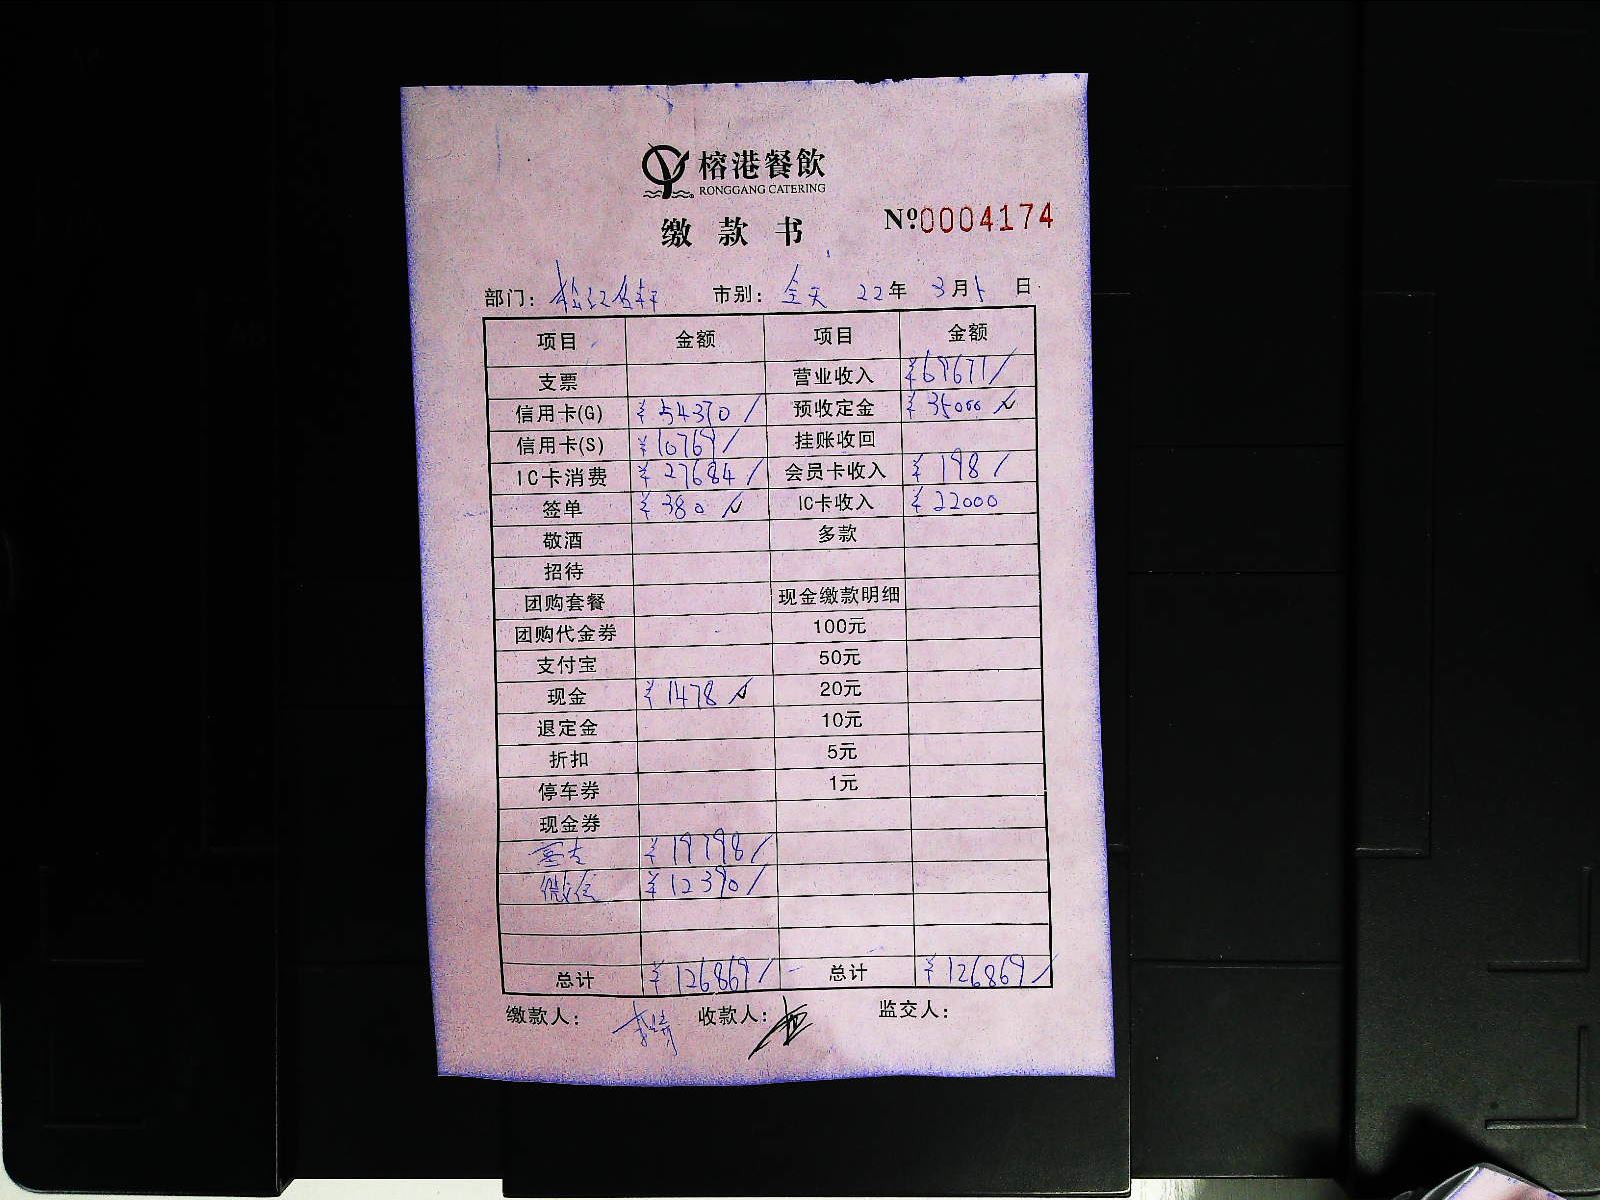 榕港餐飲
RONGGANG CATERING
缴款书
Nº:0004174
部门：松江名轩 市别：全天 22年 3月 日
项目 金额 项目 金额
支票 营业收入 ¥69671
信用卡(G) ¥54370 预收定金 ¥35000
信用卡(S) ¥10769 挂账收回
IC卡消费 ¥27684 会员卡收入 ¥198
签单 ¥380 IC卡收入 ¥22000
敬酒 多款
招待
团购套餐 现金缴款明细
团购代金券 100元
支付宝 50元
现金 ¥1478 20元
退定金 10元
折扣 5元
停车券 1元
现金券
¥19798
微信 ¥12390
总计 ¥126869 总计 ¥126869
缴款人： 收款人： 监交人：